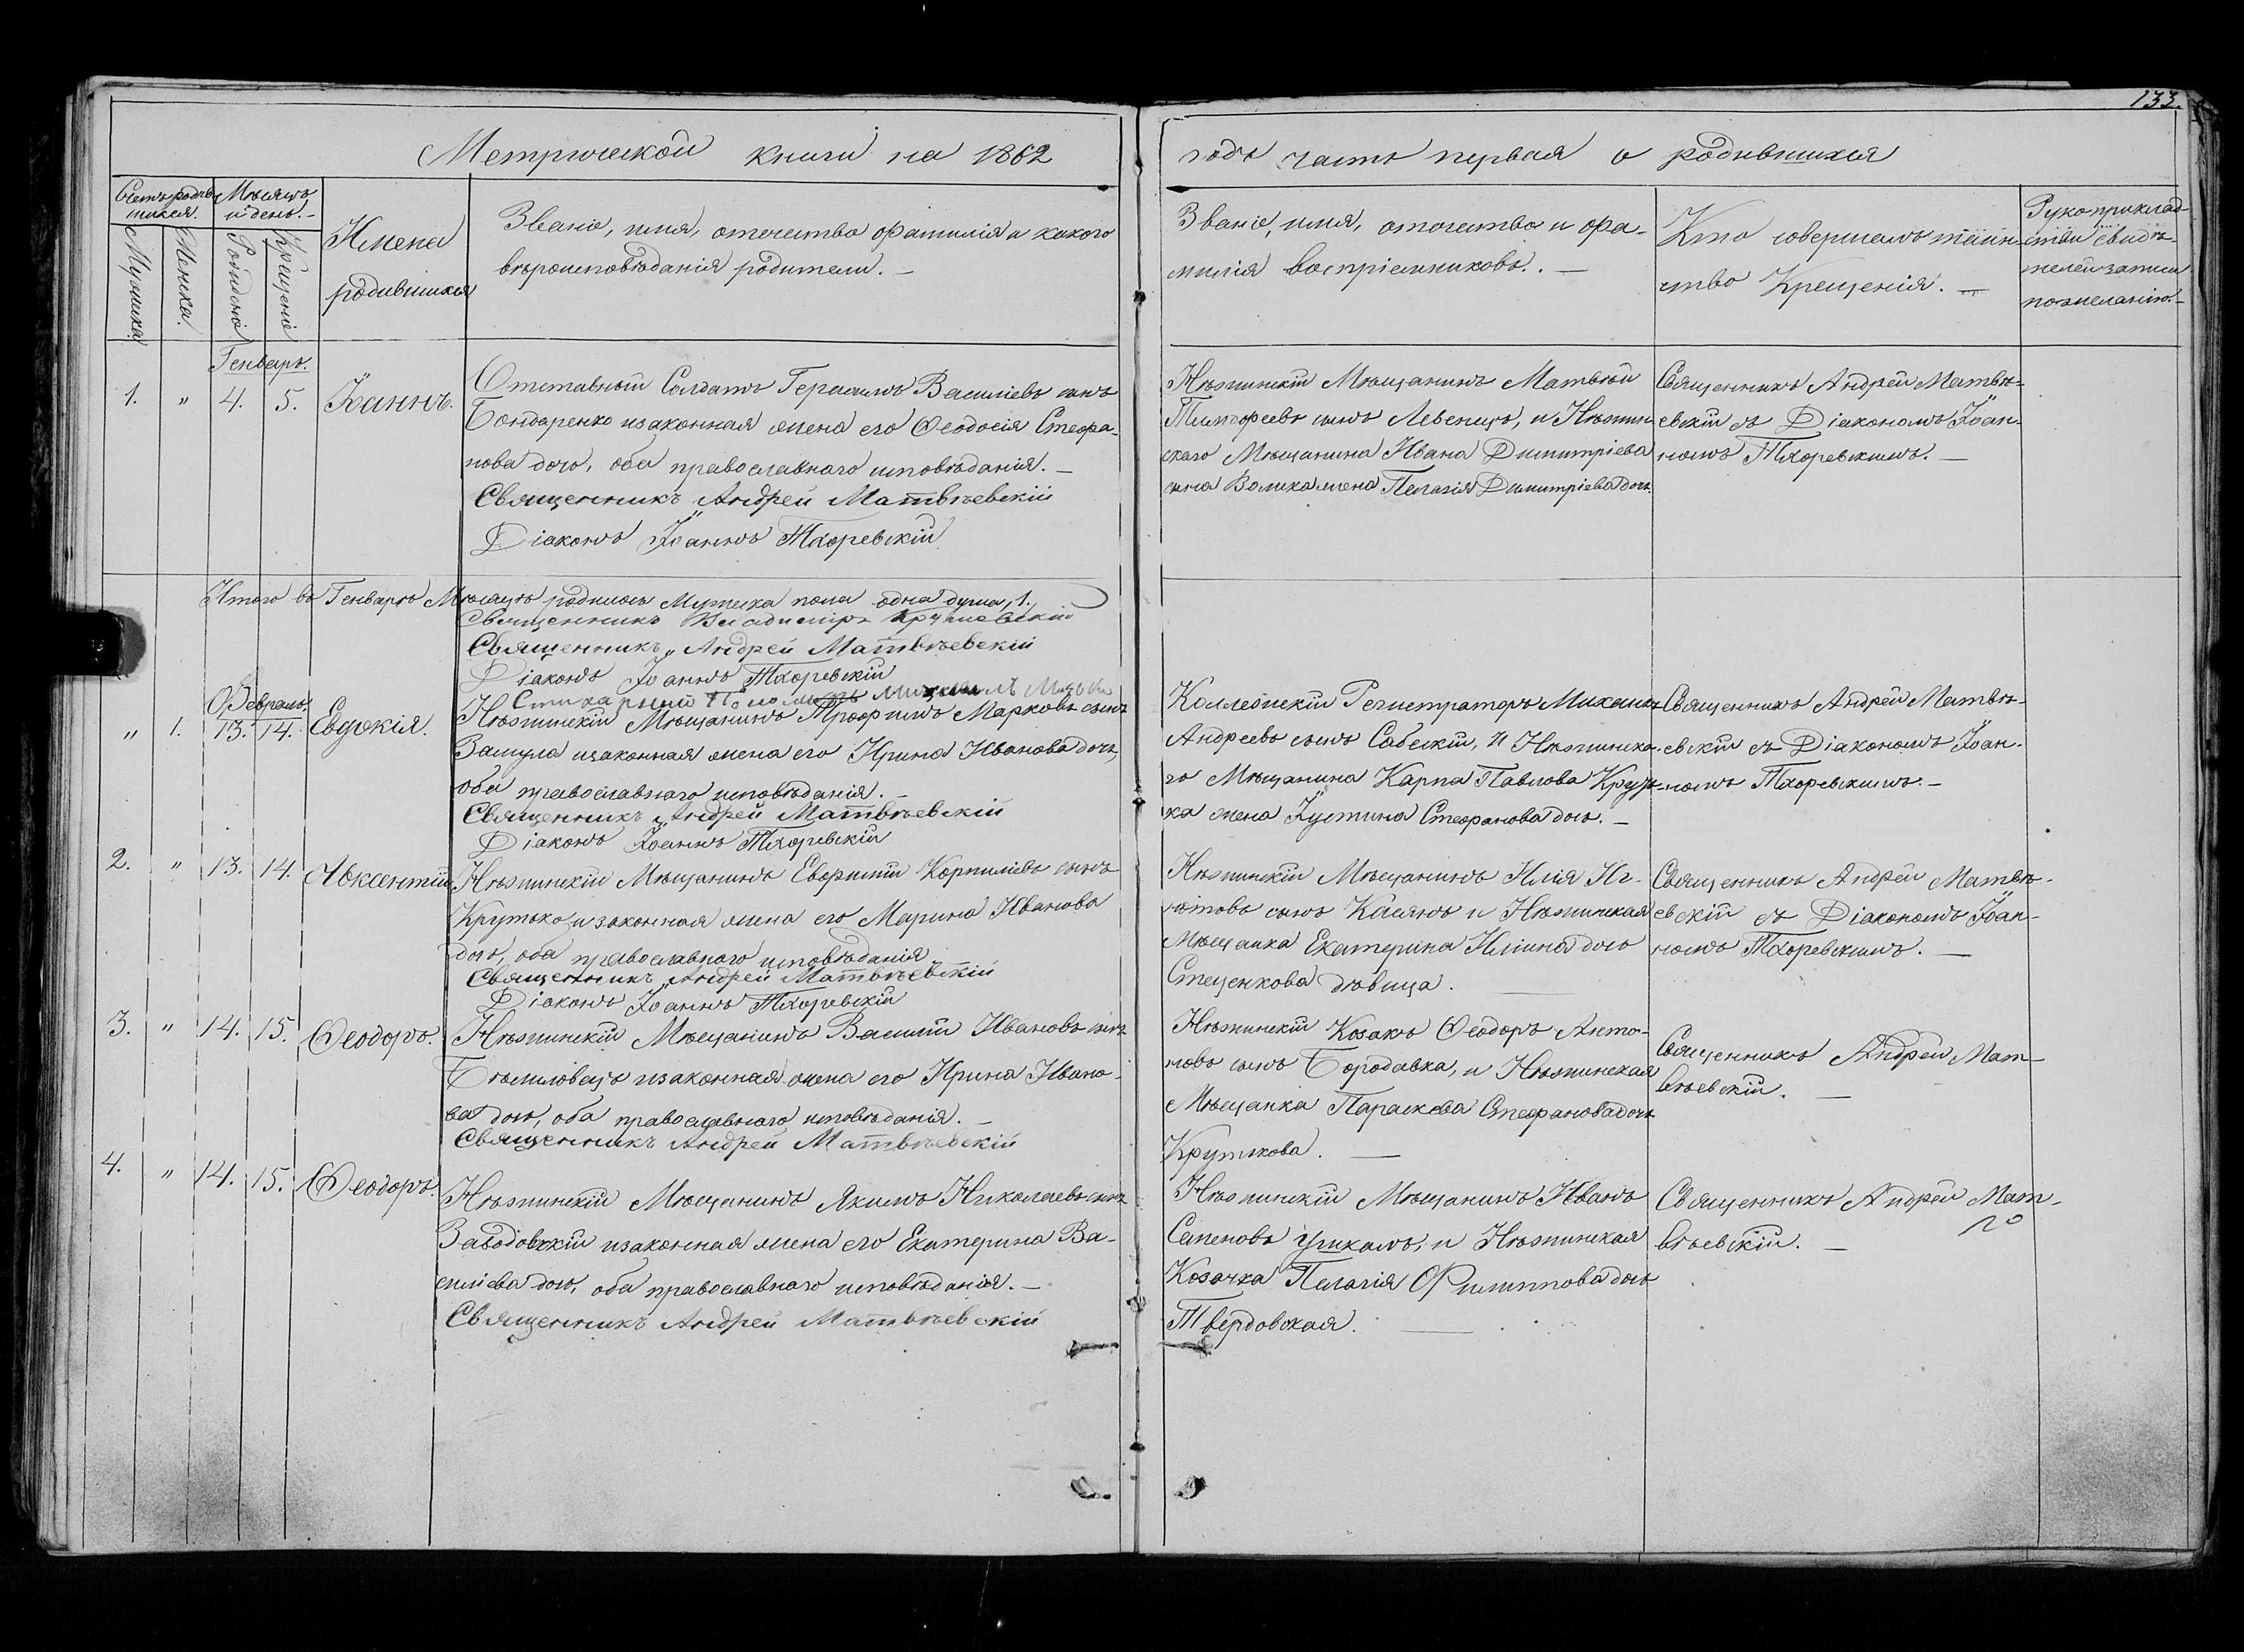 133.
Метрической книги на 1862
годъ часть первая о родившихся
Счетъ родив-
шихся.
Мѣсяцъ
и день.
Мужска.
Женска.
Рожденіе
Крещеніе
Имена
родившихся
Званіе, имя, отечество фамилія и какого
вѣроисповѣданія родители. —
Званіе, имя, отечество и фа-
милія воспріемниковъ. —
Кто совершалъ таин-
ство Крещенія. —
Рукоприклад-
ство свидѣ-
телей записи
по желанію. —
Генварь.
1. " 4. 5. Іоаннъ.
Отставный Солдатъ Герасимъ Василіевъ сынъ
Бондаренко и законная жена его Феодосія Стефа-
нова дочь, оба православнаго исповѣданія. —
Священникъ Андрей Матвѣевскій
Діаконъ Іоаннъ Тхоревскій
Нѣжинскій Мѣщанинъ Матвѣй
Тимофеевъ сынъ Левенецъ, и Нѣжин-
скаго Мѣщанина Ивана Димитріева
сына Волика жена Пелагія Димитріева дочь.
Священникъ Андрей Матвѣ-
евскій съ Діакономъ Іоан-
номъ Тхоревскимъ. —
Итого въ Генварѣ Мѣсяцѣ родилось Мужеска пола одна душа, 1.
Священникъ Владиміръ
Священникъ Андрей Матвѣевскій
Діаконъ Іоаннъ Тхоревскій
Стихарный
Февраль.
" 1. 13. 14. Евдокія.
Нѣжинскій Мѣщанинъ Трофимъ Марковъ сынъ
Замула и законная жена его Ирина Иванова дочь,
оба православнаго исповѣданія. —
Священникъ Андрей Матвѣевскій
Діаконъ Іоаннъ Тхоревскій
Коллежскій Регистраторъ Михаилъ
Андреевъ сынъ Собескій, и Нѣжинска-
го Мѣщанина Карпа Павлова
ка жена Іустина Стефанова дочь. —
Священникъ Андрей Матвѣ-
евскій съ Діакономъ Іоан-
номъ Тхоревскимъ. —
2. " 13. 14. Авксентій
Нѣжинскій Мѣщанинъ Евфимій Корнилієвъ сынъ
Крутько и законная жена его Марина Иванова
дочь, оба православнаго исповѣданія
Священникъ Андрей Матвѣевскій
Діаконъ Іоаннъ Тхоревскій
Нѣжинскій Мѣщанинъ Илія Иг-
натовъ сынъ Касянъ и Нѣжинская
Мѣщанка Екатерина Иліина дочь
Стеценкова дѣвица. —
Священникъ Андрей Матвѣ-
евскій съ Діакономъ Іоан-
номъ Тхоревскимъ. —
3. " 14. 15. Феодоръ.
Нѣжинскій Мѣщанинъ Василій Ивановъ сынъ
и законная жена его Ирина Ивано-
ва дочь, оба православнаго исповѣданія. —
Священникъ Андрей Матвѣевскій
Нѣжинскій Козакъ Феодоръ Анто-
новъ сынъ Бородавка, и Нѣжинская
Мѣщанка Параскева Стефанова дочь
Крутькова. —
Священникъ Андрей Мат-
вѣевскій. —
4. " 14. 15. Феодоръ.
Нѣжинскій Мѣщанинъ Якимъ Николаевъ сынъ
Заводовскій и законная жена его Екатерина Ва-
силіева дочь, оба православнаго исповѣданія. —
Священникъ Андрей Матвѣевскій
Нѣжинскій Мѣщанинъ Иванъ
Семеновъ и Нѣжинская
Козачка Пелагія Филиппова дочь
Твердовская. —
Священникъ Андрей Мат-
вѣевскій. —